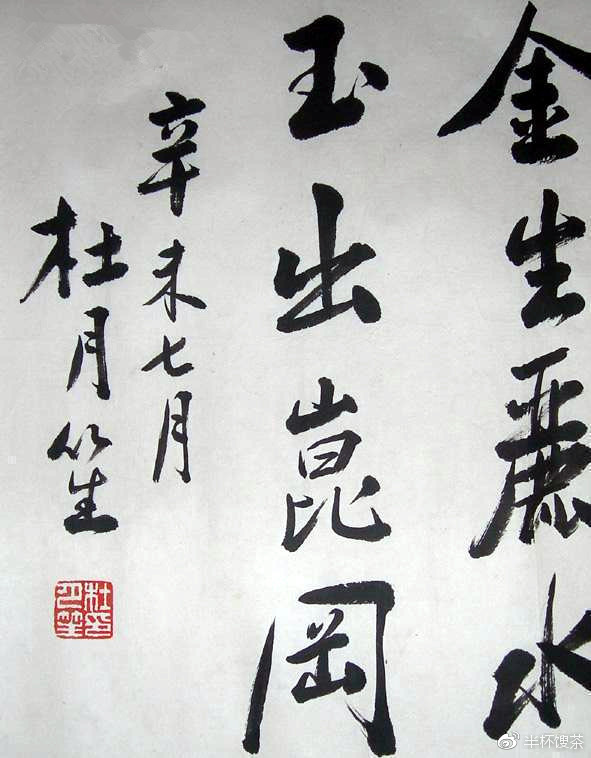 金生麗水
玉出崑岡
辛未七月
杜月笙
杜月笙印
@半杯馊茶